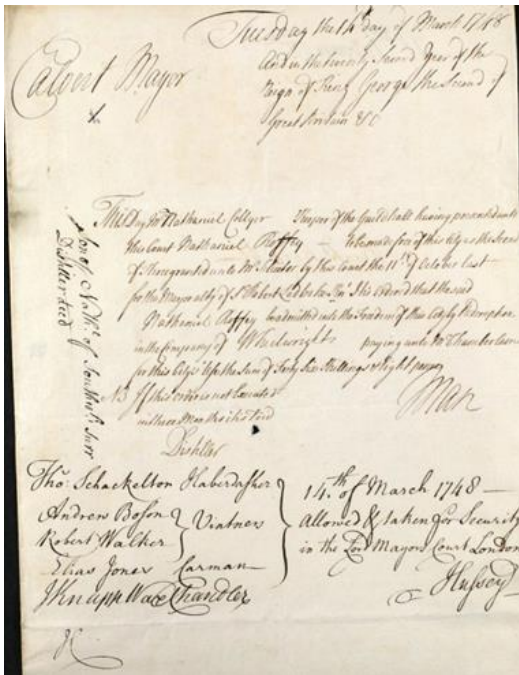 Tuesday the 14th day of March 1748
Calvert Mayor
And in the twenty Second Year of the
Reign of King George the Second of
Great Britain &c
This Day Mr Nathaniel Collyer Keeper of the Guildhall having presented unto
this Court Nathaniel Roffey to be made free of this City as the Second
of Three granted unto Mr by this Court the 11th of October last
for the Mayoralty of Sr Robert Ladbroke Knt It is ordered that the said
Nathaniel Roffey be admitted into the Freedom of this City by Redemption
in the Company of Wheelwrights paying unto Mr Chamberlain
for this City's Use the sum of Forty Six Shillings & Eight pence
NB If this order is not Executed
in three Months it is Void
Man
Distiller
Son of Nathl of Southwk Surr
Distiller decd
Thos Schackelton Haberdasher
Andrew Boson
Robert Walker
Vintners
Elias Jones Carman
J Knapp Wax Chandler
14th of March 1748
Allowed & taken for Security
in the Lord Mayors Court London
Hussey